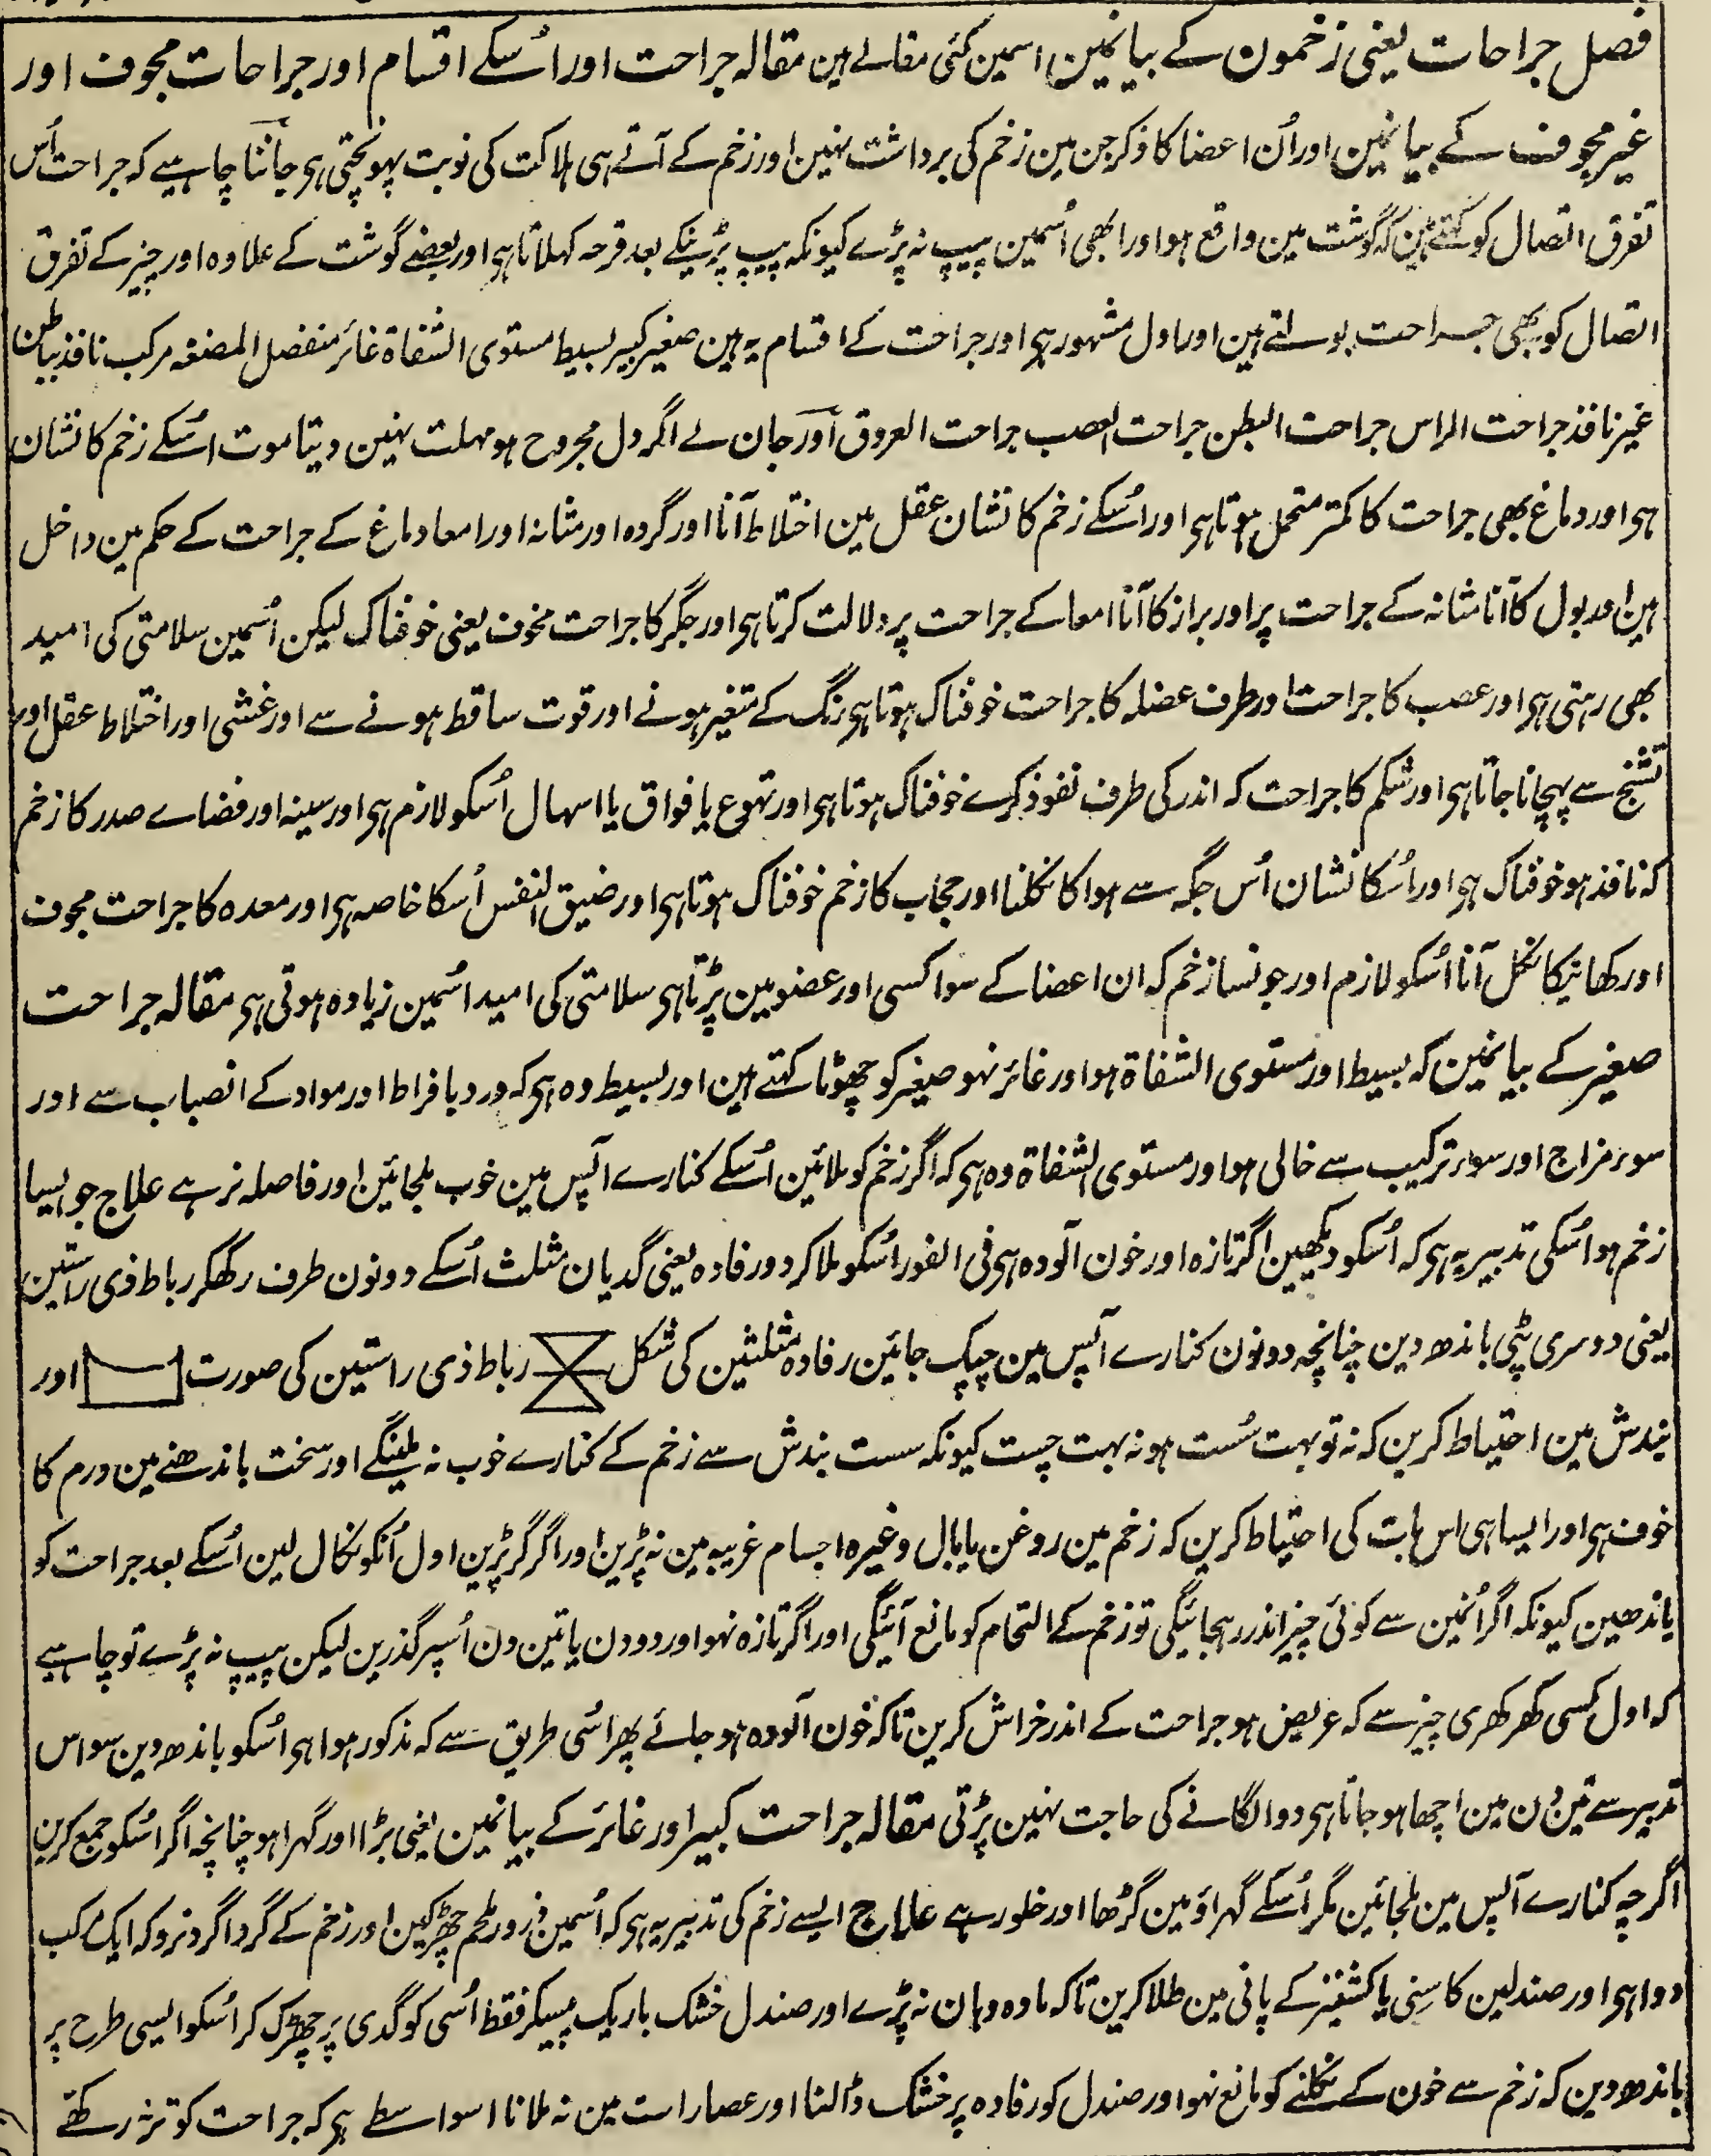 فصل جراحات یعنی زخمون کے بیانمین اسمین کئی مقالے ہین مقالہ جراحت اور اُسکے اقسام اور جراحات مجوف اور
غیر مجوف کے بیانمین اور اُن اعضا کا ذکر جن مین زخم کی برداشت نہین اور زخم کے آتے ہی ہلاکت کی نوبت پہونچتی ہی جاننا چاہیے کہ جراحت اُس
تفرق اتصال کو کہتے ہین کہ گوشت مین واقع ہو اور ابھی اُسمین پیپ نہ پڑے کیونکہ پیپ پڑنیکے بعد قرحہ کہلاتا ہی اور بعضے گوشت کے علاوہ اور چیز کے تفرق
اتصال کو بھی جراحت بولتے ہین اور اول مشہور ہی اور جراحت کے اقسام یہ ہین صغیر کبیر بسیط مستوی الشفاۃ غائر منفصل المضغہ مرکب نافذ بباطن
غیر نافذ جراحت الراس جراحت البطن جراحت العصب جراحت العروق اور جان لے اگر دل مجروح ہو مہلت نہین دیتا موت اسکے زخم کا نشان
ہی اور دماغ بھی جراحت کا کمتر متحمل ہوتا ہی اور اُسکے زخم کا نشان عقل مین اختلاط آنا اور گردہ اور مثانہ اور امعا دماغ کے جراحت کے حکم مین داخل
ہین اور بول کا آنا مثانہ کے جراحت پر اور براز کا آنا امعا کے جراحت پر دلالت کرتا ہی اور جگر کا جراحت مخوف یعنی خوفناک لیکن اُسمین سلامتی کی امید
بھی رہتی ہی اور عصب کا جراحت اور طرف عضلہ کا جراحت خوفناک ہوتا ہی رنگ کے متغیر ہونے اور قوت ساقط ہونے سے اور غشی اور اختلاط عقل اور
تشنج سے پہچانا جاتا ہی اور شکم کا جراحت کہ اندر کی طرف نفوذ کرے خوفناک ہوتا ہی اور تہوع یا فواق یا اسہال اُسکو لازم ہی اور سینہ اور فضاے صدر کا زخم
کہ نافذ ہو خوفناک ہی اور اُسکا نشان اُس جگہ سے ہوا کا نکلنا اور حجاب کا زخم خوفناک ہوتا ہی اور ضیق النفس اُسکا خاصہ ہی اور معدہ کا جراحت مجوف
اور کھانیکا نکل آنا اُسکو لازم اور جونسا زخم کہ ان اعضا کے سوا کسی اور عضو مین پڑتا ہی سلامتی کی امید اُسمین زیادہ ہوتی ہی مقالہ جراحت
صغیر کے بیانمین کہ بسیط اور مستوی الشفاۃ ہو اور غائر نہو صغیر کو چھوٹا کہتے ہین اور بسیط وہ ہی کہ درد بافراط اور مواد کے انصباب سے اور
سوء مزاج اور سوء ترکیب سے خالی ہو اور مستوی الشفاۃ وہ ہی کہ اگر زخم کو ملائین اُسکے کنارے آپس مین خوب ملجائین اور فاصلہ نرہے علاج جو ایسا
زخم ہو اُسکی تدبیر یہ ہی کہ اُسکو دیکھین اگر تازہ اور خون آلودہ ہی فی الفور اُسکو ملا کر دو رفادہ یعنی گدیان مثلث اُسکے دونون طرف رکھکر رباط ذی راستین
یعنی دوسری پٹی باندھ دین چنانچہ دونون کنارے آپس مین چپک جائین رفادہ مثلثین کی شکل رباط ذی راستین کی صورت اور
بندش مین احتیاط کرین کہ نہ تو بہت سُست ہو نہ بہت چست کیونکہ سست بندش سے زخم کے کنارے خوب نہ ملینگے اور سخت باندھنے مین ورم کا
خوف ہی اور ایسا ہی اس بات کی احتیاط کرین کہ زخم مین روغن یا بال وغیرہ اجسام غریبہ مین نہ پڑین اور اگر گر پڑین اول اُنکو نکال لین اُسکے بعد جراحت کو
باندھین کیونکہ اگر اُنمین سے کوئی چیز اندر رہجائیگی تو زخم کے التحام کو مانع آئیگی اور اگر تازہ نہو اور دو دن یا تین دن اُسپر گذرین لیکن پیپ نہ پڑے تو چاہیے
کہ اول کسی کھرکھری چیز سے کہ عریض ہو جراحت کے اندر خراش کرین تاکہ خون آلودہ ہو جائے پھر اُسی طریق سے کہ مذکور ہوا ہی اُسکو باندھ دین سو اس
تدبیر سے تین دن مین اچھا ہو جاتا ہی دوا لگانے کی حاجت نہین پڑتی مقالہ جراحت کبیر اور غائر کے بیانمین یعنی بڑا اور گہرا ہو چنانچہ اگر اُسکو جمع کرین
اگرچہ کنارے آپس مین ملجائین مگر اُسکے گہراؤ مین گڑھا اور خلو رہے علاج ایسے زخم کی تدبیر یہ ہی کہ اُسمین ذرور ملحم چھڑکین اور زخم کے گردا گرد نرو کہ ایک مرکب
دوا ہی اور صندلین کاسنی یا کشنیز کے پانی مین طلا کرین تاکہ مادہ وہان نہ پڑے اور صندل خشک باریک پیسکر فقط اُسی کو گدی پر چھڑک کر اُسکو ایسی طرح پر
باندھ دین کہ زخم سے خون کے نکلنے کو مانع نہو اور صندل کو رفادہ پر خشک ڈالنا اور عصارات مین نہ ملانا اسواسطے ہی کہ جراحت کو تر نہ رکھتے